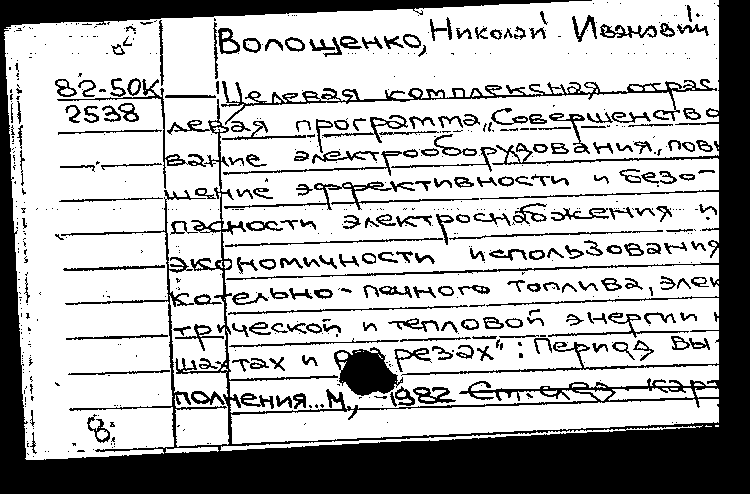 Волощенко, Николай Иванович
82-50К Целевая комплексная отрас
2538 левая программа „Совершенство
вание электрооборудования, повы
шение эффективности и безо-
пасности электроснабжения и
экономичности использования
котельно-печного топлива, элек
трической и тепловой энергии н
шахтах и разрезах": Период вы-
полнения... М., 1982 См. след. карт
8.